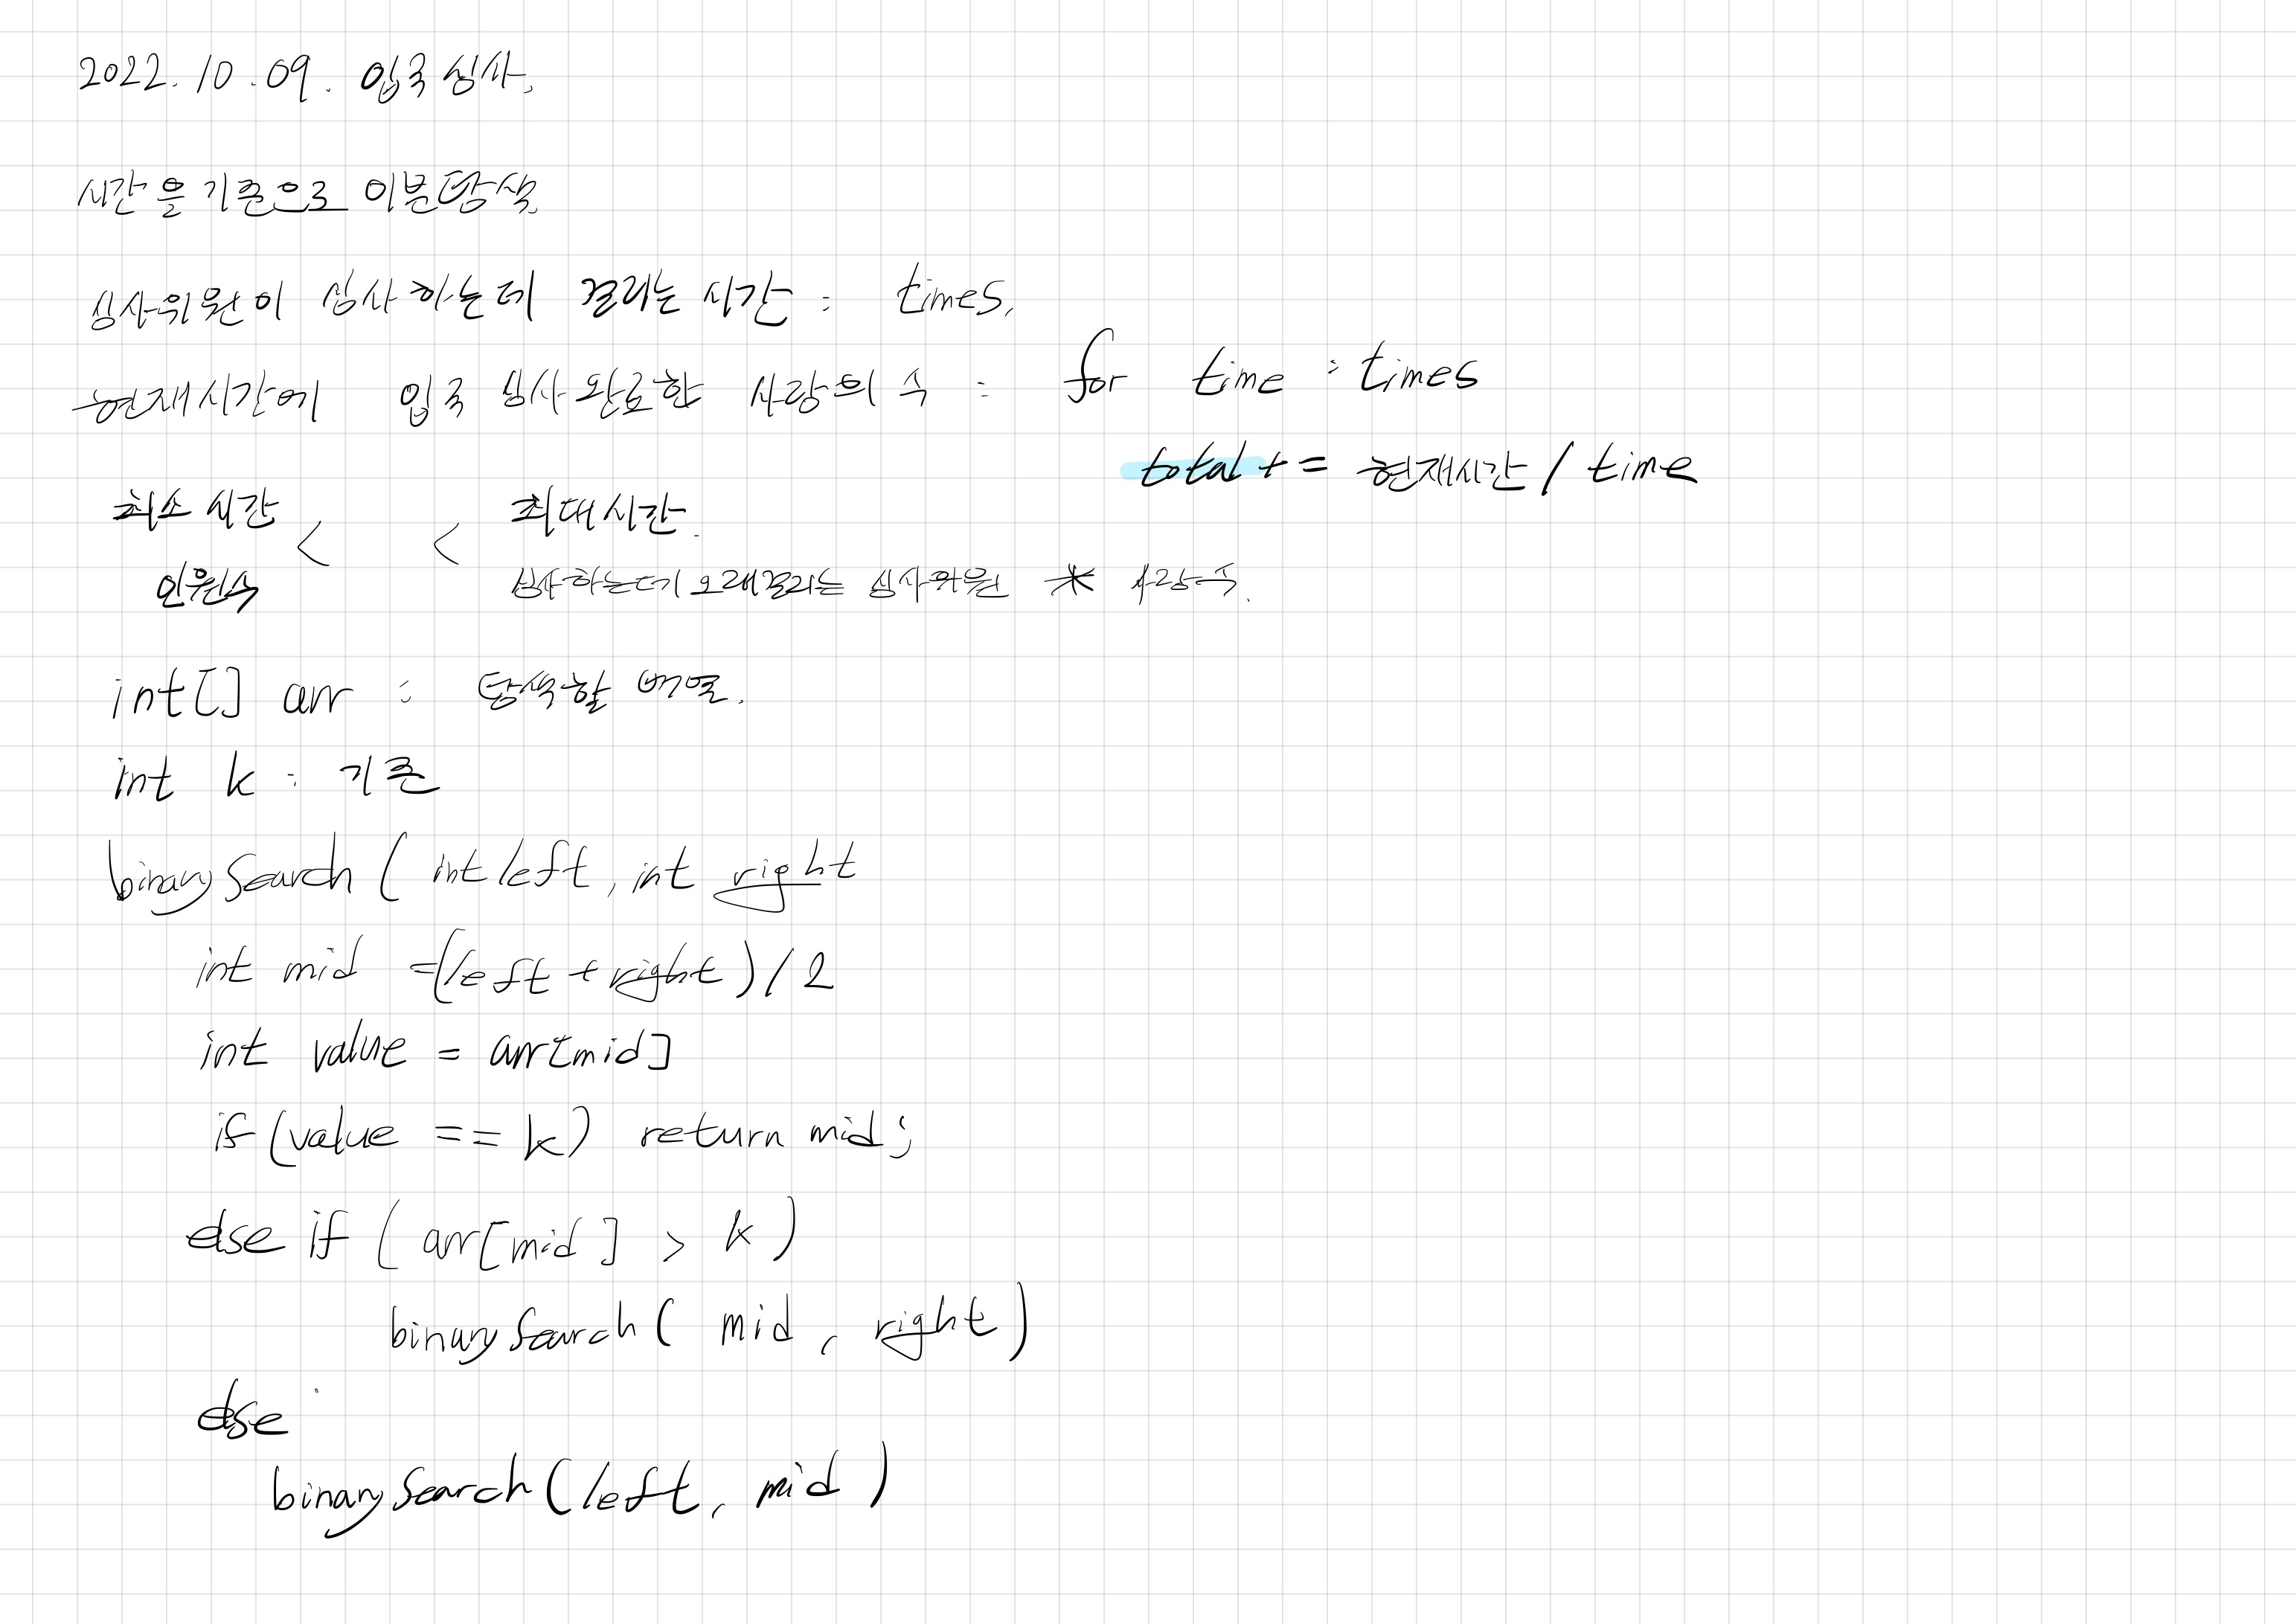 2022. 10. 09. 입국심사.
시간을 기준으로 이분탐색.
심사위원이 심사하는데 걸리는 시간 : times.
현재시간에 입국 심사 완료한 사람의 수 : for time : times
total += 현재시간 / time
최소 시간 < < 최대시간.
인원수 심사하는데 오래걸리는 심사위원 * 사람수.
int[] arr : 탐색할 배열.
int k : 기준
binarySearch ( int left, int right
int mid = (left + right) / 2
int value = arr[mid]
if (value == k) return mid;
else if ( arr[mid] > k )
binarySearch ( mid, right )
else :
binarySearch (left, mid )